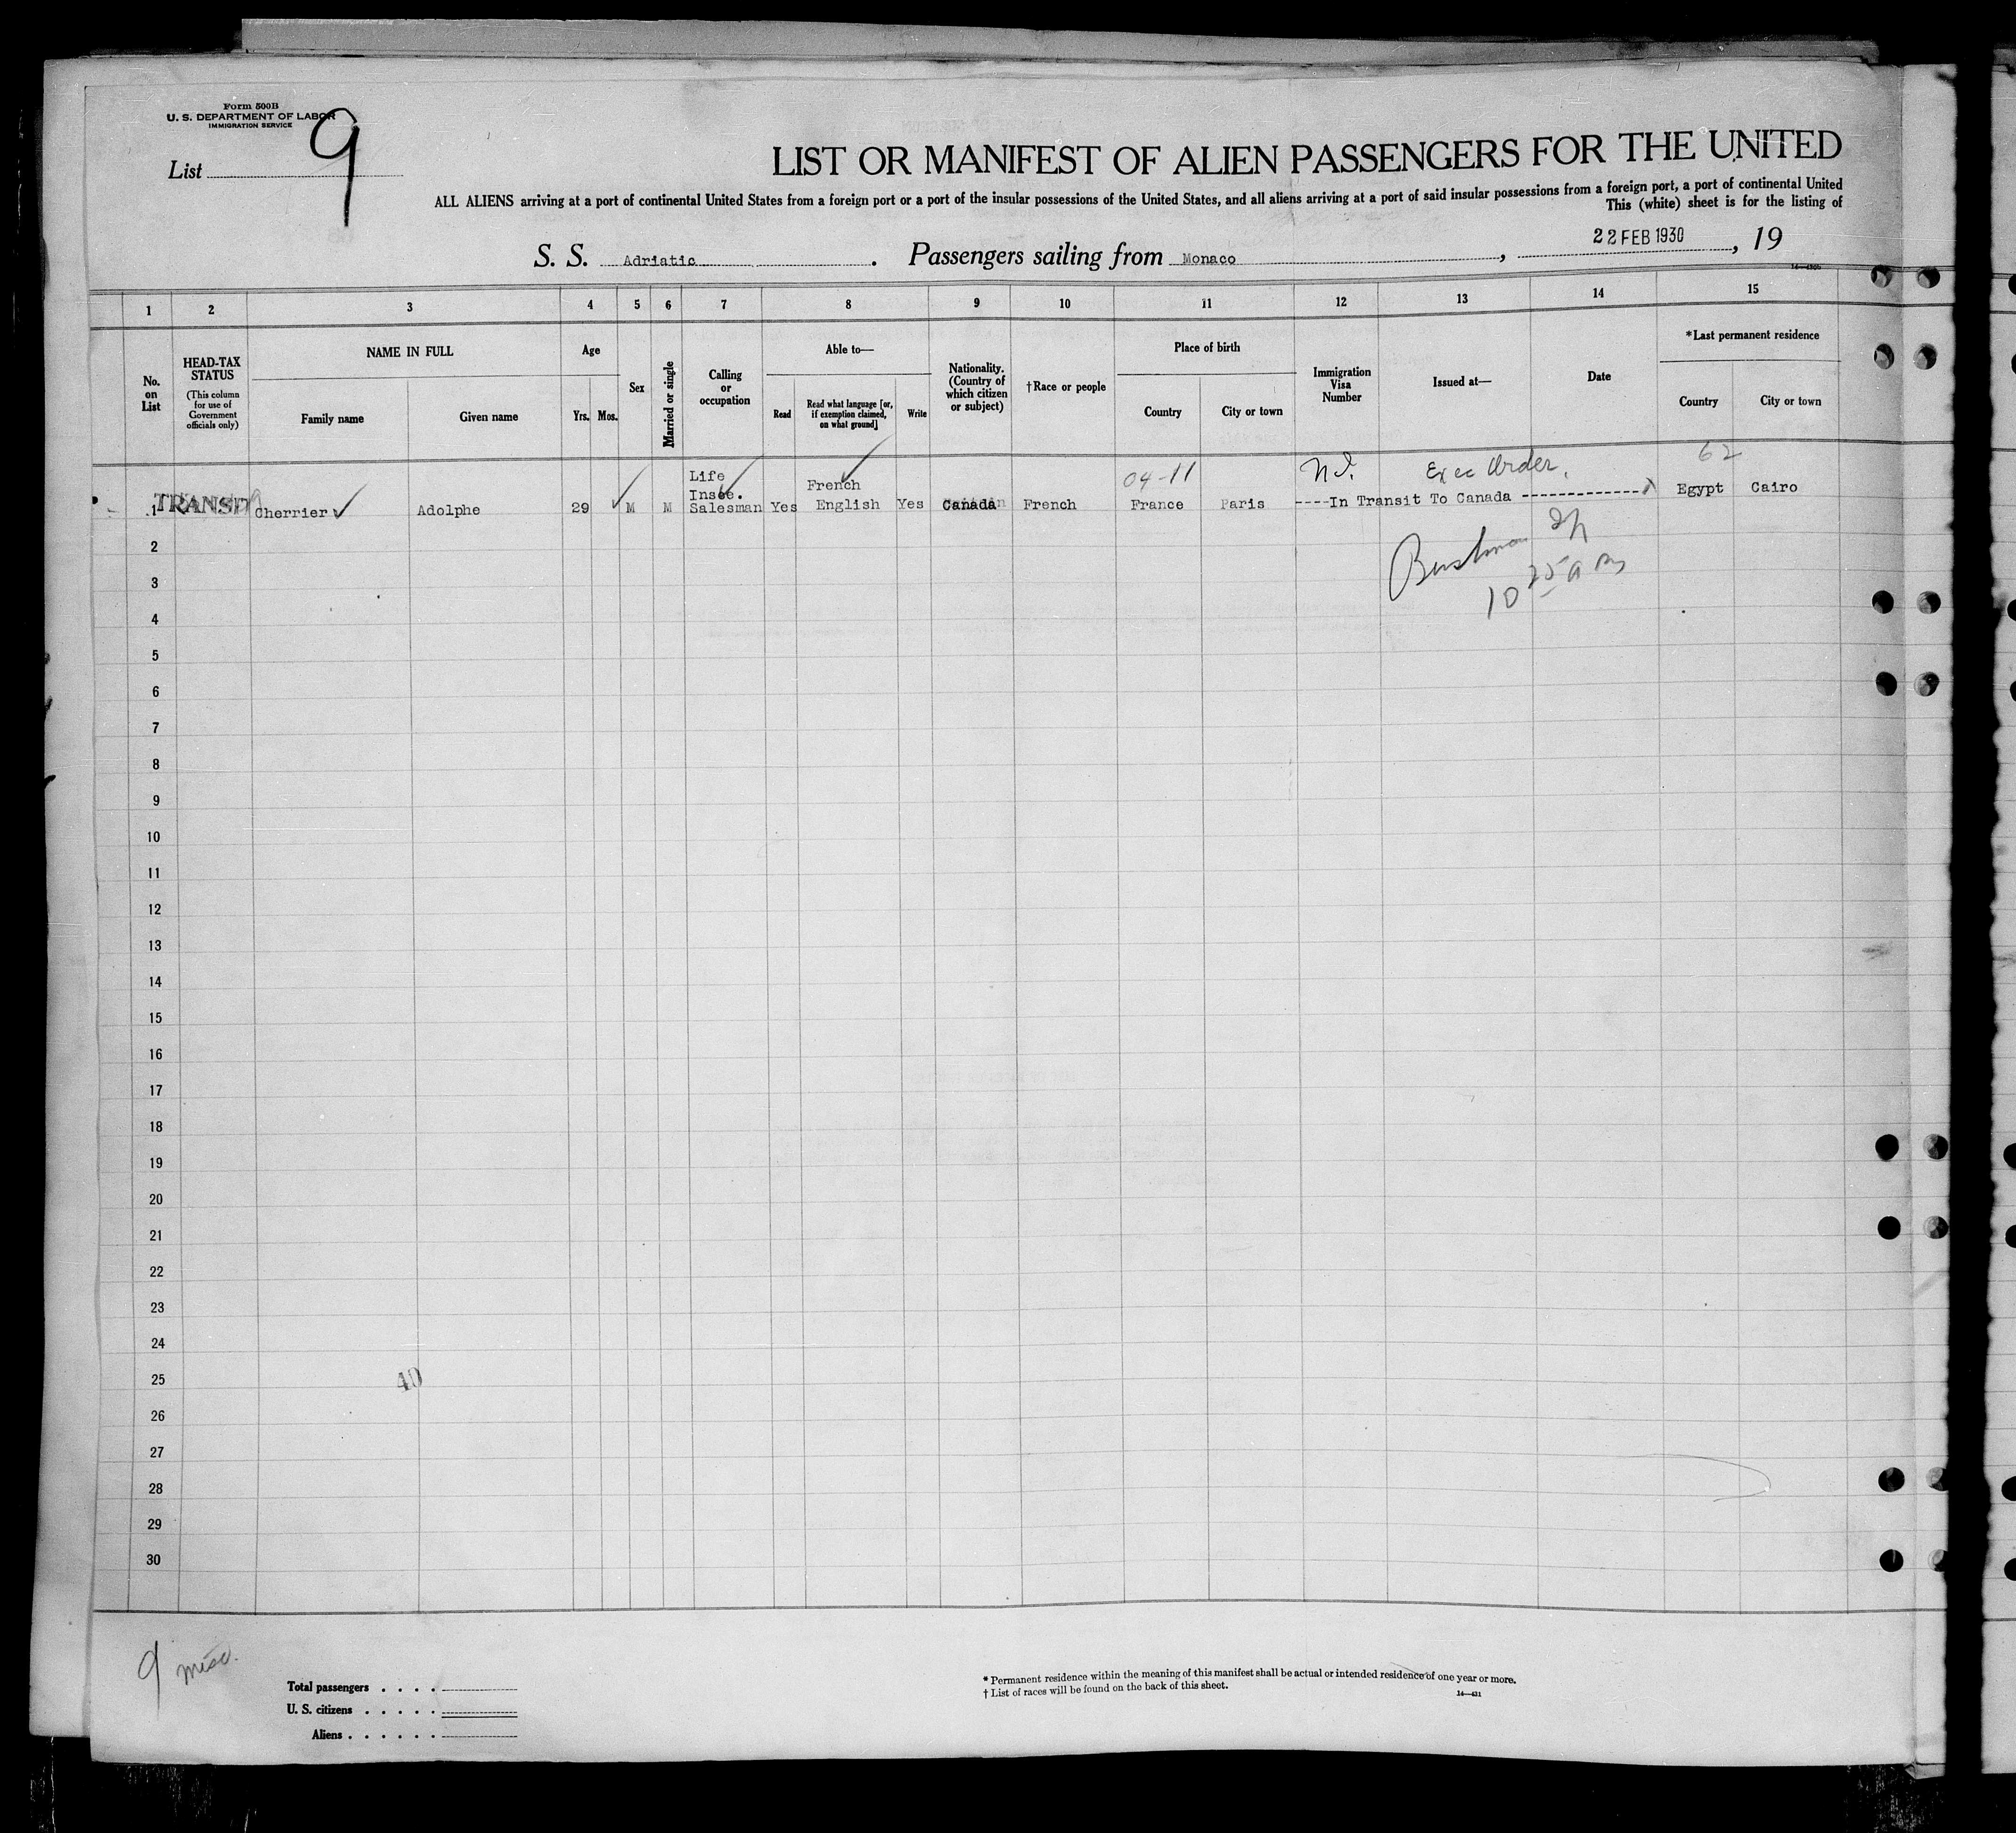 Form 500B
U. S. DEPARTMENT OF LABOR
IMMIGRATION SERVICE
List 9
LIST OR MANIFEST OF ALIEN PASSENGERS FOR THE UNITED
ALL ALIENS arriving at a port of continental United States from a foreign port or a port of the insular possessions of the United States, and all aliens arriving at a port of said insular possessions from a foreign port, a port of continental United
This (white) sheet is for the listing of
S. S. Adriatic . Passengers sailing from Monaco , 22 FEB 1930 , 19
1 2 3 4 5 6 7 8 9 10 11 12 13 14 15
No. on List
HEAD-TAX STATUS
(This column for use of Government officials only)
NAME IN FULL
Family name Given name
Age
Yrs. Mos.
Sex
Married or single
Calling or occupation
Able to—
Read
Read what language [or, if exemption claimed, on what ground]
Write
Nationality. (Country of which citizen or subject)
†Race or people
Place of birth
Country City or town
Immigration Visa Number
Issued at—
Date
*Last permanent residence
Country City or town
04-11 Exec Order. 62
1 Cherrier Adolphe 29 M M Life Insce. Salesman Yes French English Yes Canada French France Paris ----In Transit To Canada -------------- Egypt Cairo
2
3
10 25 a m
4
5
6
7
8
9
10
11
12
13
14
15
16
17
18
19
20
21
22
23
24
25
40
26
27
28
29
30
9 misc.
Total passengers . . . .
U. S. citizens . . . . .
Aliens . . . . . .
* Permanent residence within the meaning of this manifest shall be actual or intended residence of one year or more.
† List of races will be found on the back of this sheet.